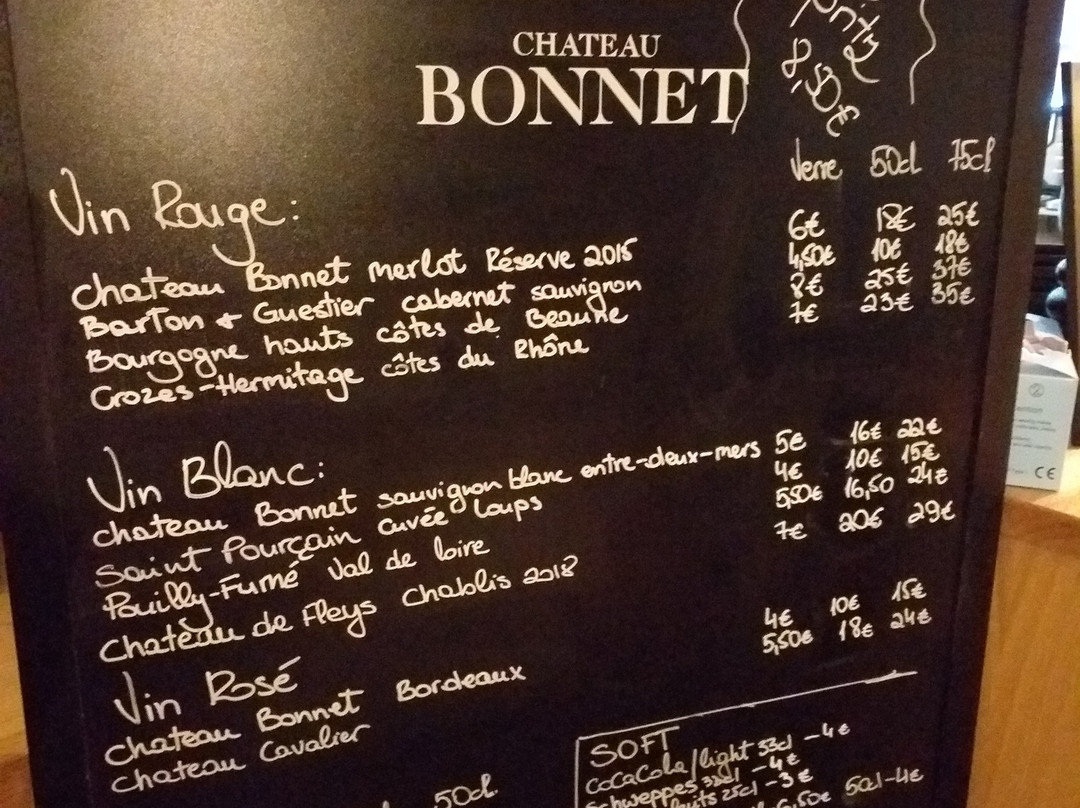 CHATEAU
BONNET
8,50€
Verre 50cl 75cl
Vin Rouge:
chateau Bonnet merlot Réserve 2015 6€ 18€ 25€
Barton & Guestier cabernet sauvignon 4,50€ 10€ 18€
Bourgogne hauts côtes de Beaune 8€ 25€ 37€
Crozes-Hermitage côtes du Rhône 7€ 23€ 35€
Vin Blanc:
chateau Bonnet sauvignon blanc entre-deux-mers 5€ 16€ 22€
Saint Pourçain cuvée Loups 4€ 10€ 15€
Pouilly-Fumé Val de loire 5,50€ 16,50 24€
Chateau de Fleys Chablis 2018 7€ 20€ 29€
Vin Rosé
chateau Bonnet Bordeaux 4€ 10€ 15€
chateau Cavalier 5,50€ 18€ 24€
SOFT
CocaCola/light 33cl - 4€
Schweppes 33cl - 4€
25cl - 3€
50cl
50cl-4€
CE